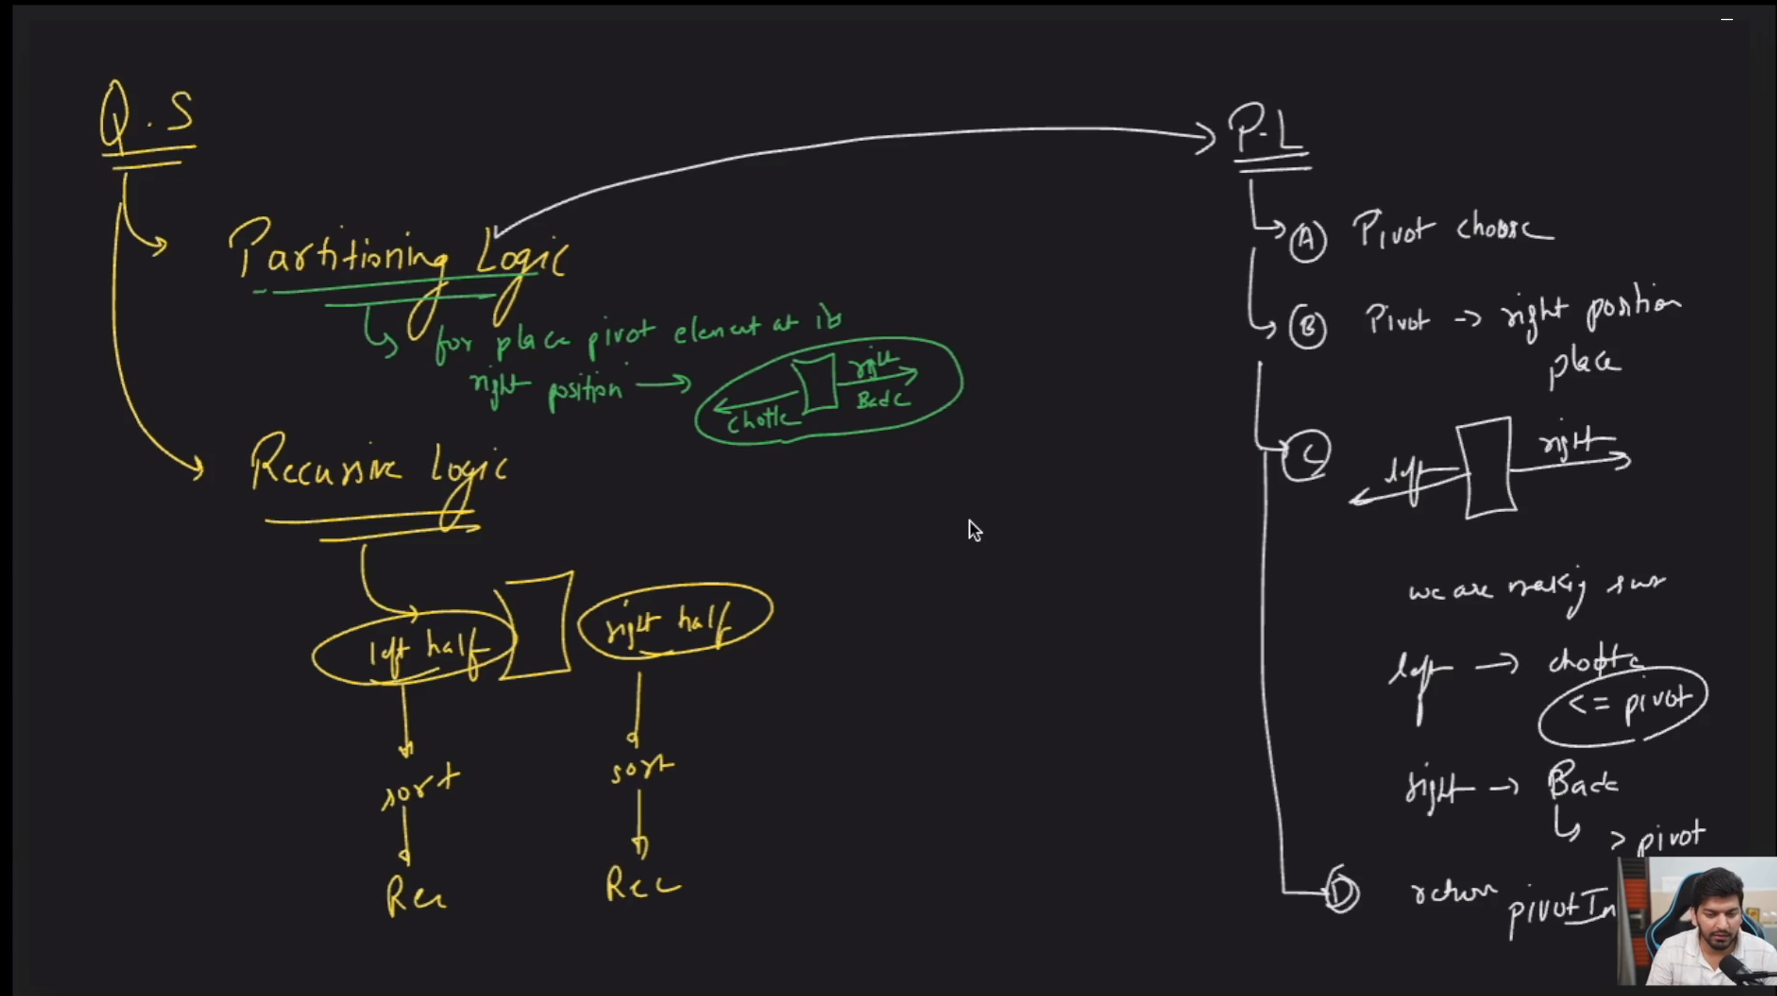 Q.S
Partitioning Logic
for place pivot element at its
right position →
chotte
right
Bade
Recursive Logic
left half
right half
sort
sort
Rec
Rec
P.L
A Pivot choose
B Pivot → right position
place
C
left
right
we are making sure
left → chotte
<= pivot
right → Bade
> pivot
D return pivotIn